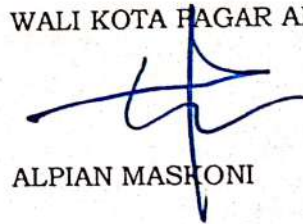 WALI KOTA PAGAR
ALPIAN MASKONI